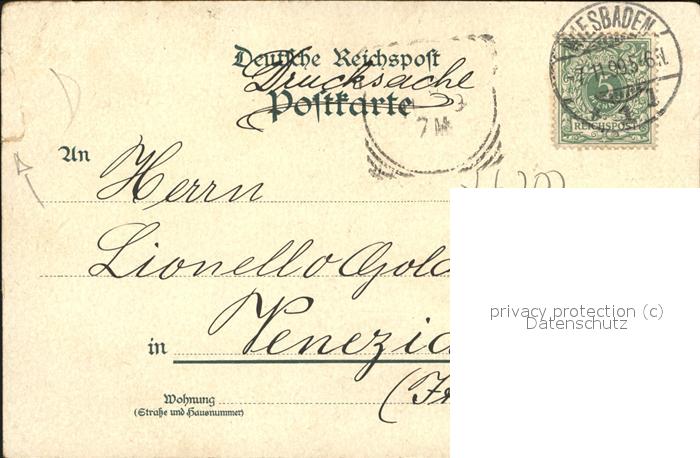 Deutsche Reichspost
Drucksache
Postkarte
WIESBADEN
5
REICHSPOST
7 M
An
Herrn
Lionello
in Venezia
Wohnung
(Straße und Hausnummer)
privacy protection (c)
Datenschutz